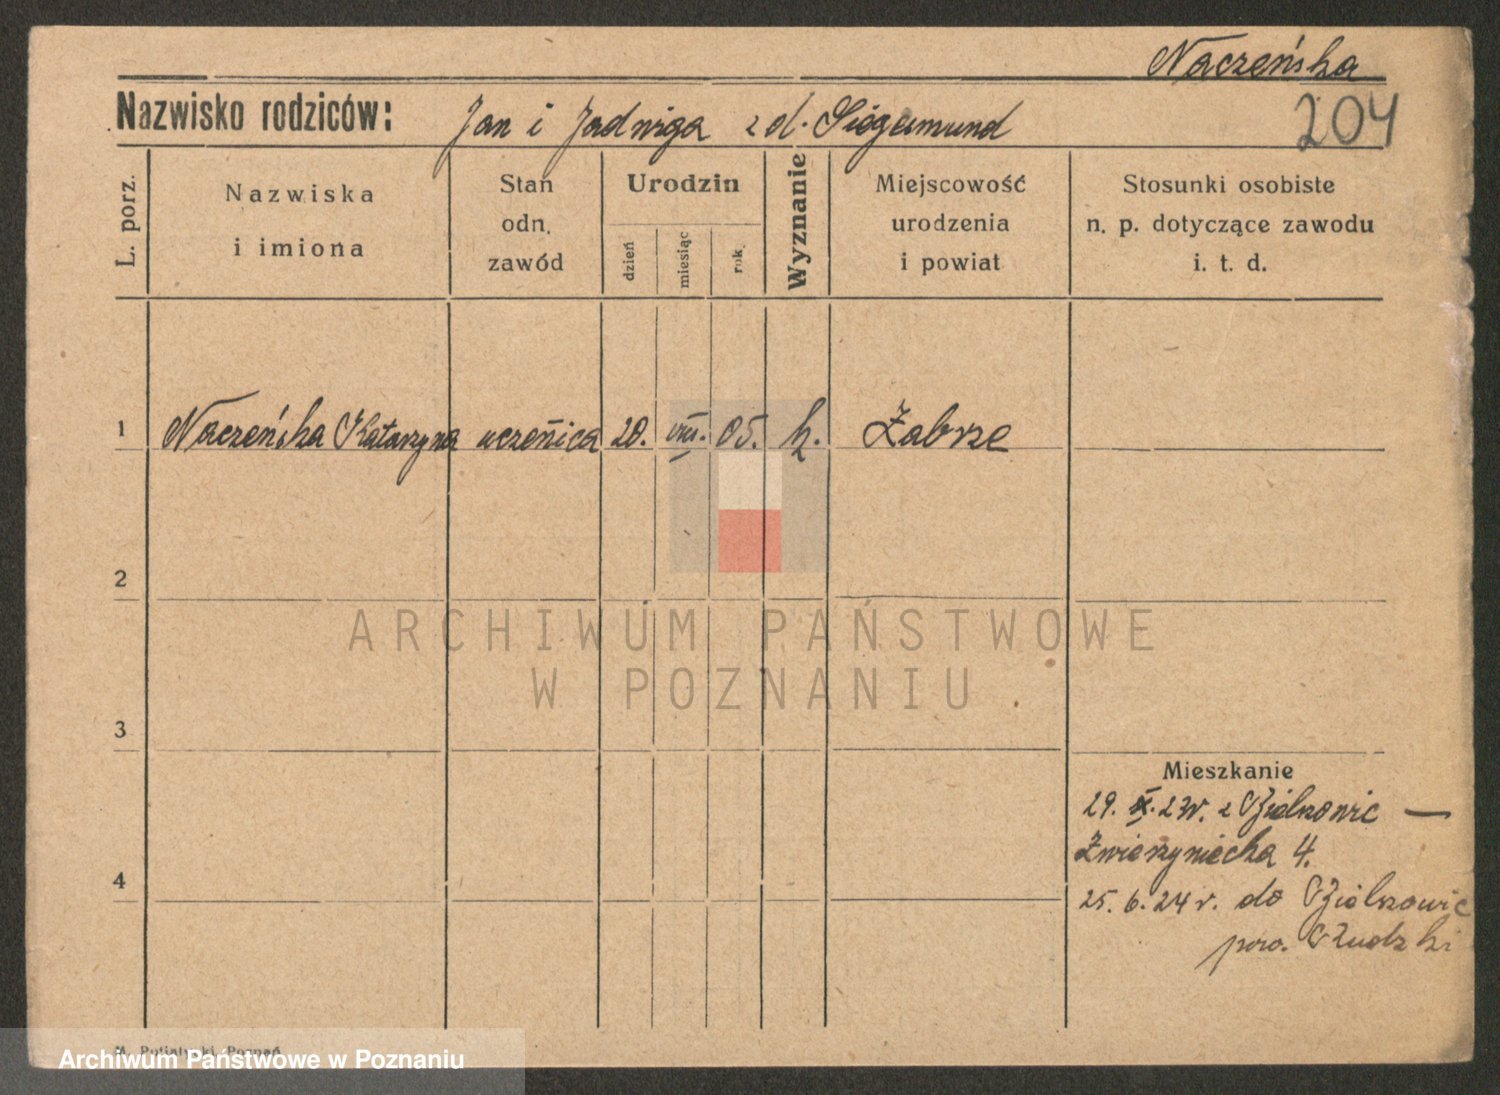 Naczeńska
Nazwisko rodziców: Jan i Jadwiga z d. Siegesmund 204
L. porz.
Nazwiska i imiona
Stan odn. zawód
Urodzin
dzień miesiąc rok.
Wyznanie
Miejscowość urodzenia i powiat
Stosunki osobiste n. p. dotyczące zawodu i. t. d.
1 Naczeńska Katarzyna uczenica 20. VIII. 05. k. Zabrze
2
3
4
ARCHIWUM PAŃSTWOWE
W POZNANIU
Mieszkanie
29. IX. 23r. z —
Zwierzyniecka 4.
25. 6. 24 r. do
pow. Rudzki
Poznań
Archiwum Państwowe w Poznaniu